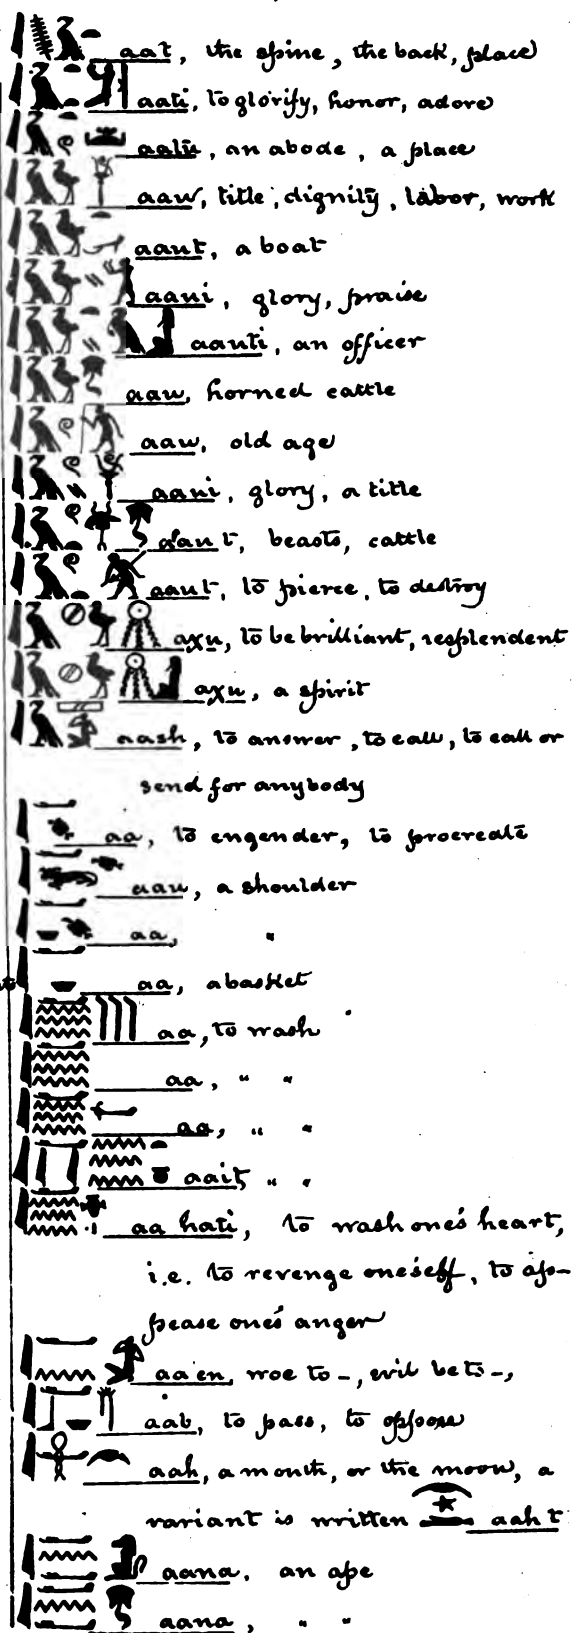 aat, the spine, the back, place
aati, to glorify, honor, adore
aatu, an abode, a place
aaw, title, dignity, labor, work
aaut, a boat
aaui, glory, praise
aauti, an officer
aau, horned cattle
aaw, old age
aaui, glory, a title
aaut, beasts, cattle
aaut, to pierce, to destroy
aχu, to be brilliant, resplendent
aχu, a spirit
aash, to answer, to call, to call or
send for anybody
aa, to engender, to procreate
aau, a shoulder
aa, "
aa, a basket
aa, to wash
aa, " "
aa, " "
aait, " "
aa hati, to wash one's heart,
i.e. to revenge oneself, to ap-
pease one's anger
aa en, woe to -, evil be to -,
aab, to pass, to oppose
aah, a month, or the moon, a
variant is written aaht
aana, an ape
aana, " "